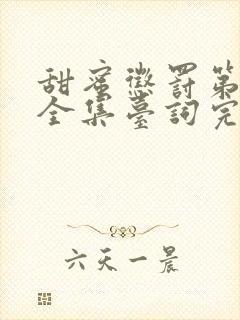 甜蜜懲罰第
全集臺詞完
六天一晨